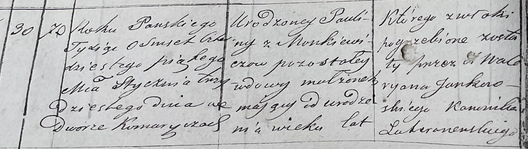 30 20 Roku Pańskiego
Tysiąc Osmset
dziestego piątego
Mca Stycznia
Dziestego dnia we
Dworze Komaryczach
Urodzoney Pauli-
ny z Monkiewi-
czow pozostałey
wdowy małżonek
maiący od urodze-
nia wieku lat
Którego zwłoki
pogrzebione zosta-
ły przez X Wale-
ryana Jankow-
skiego Kanonika
Lateranenskiego